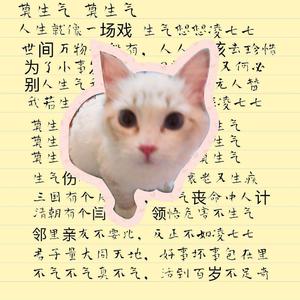 莫生气 莫生气
人生就像一场戏 生气想想凌七七
世间万物 有，人人 该去珍惜
为了小事 又何必
别人生气 无人替
我若生 凌七七
莫生 气
莫生 气
莫生 气
生气伤 衰老又生疾
三国有个 气丧命中人计
清朝有个闫 领悟危害不生气
邻里亲友不要比，反正不如凌七七
君子量大同天地，好事坏事包在里
不气不气真不气，活到百岁不足奇